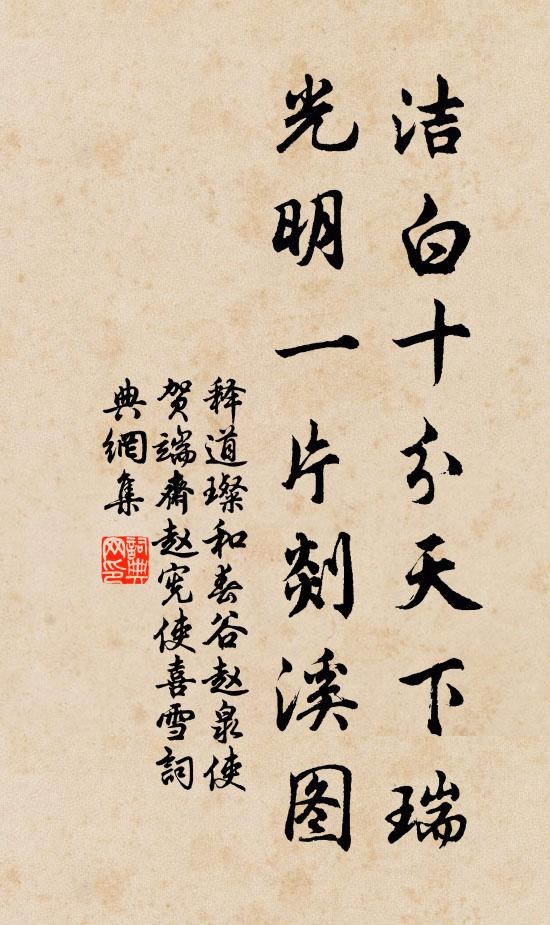 洁白十分天下瑞
光明一片剡溪图
释道璨和春谷赵泉使
贺端齋赵宪使喜雪詞
典網集
詞典网印